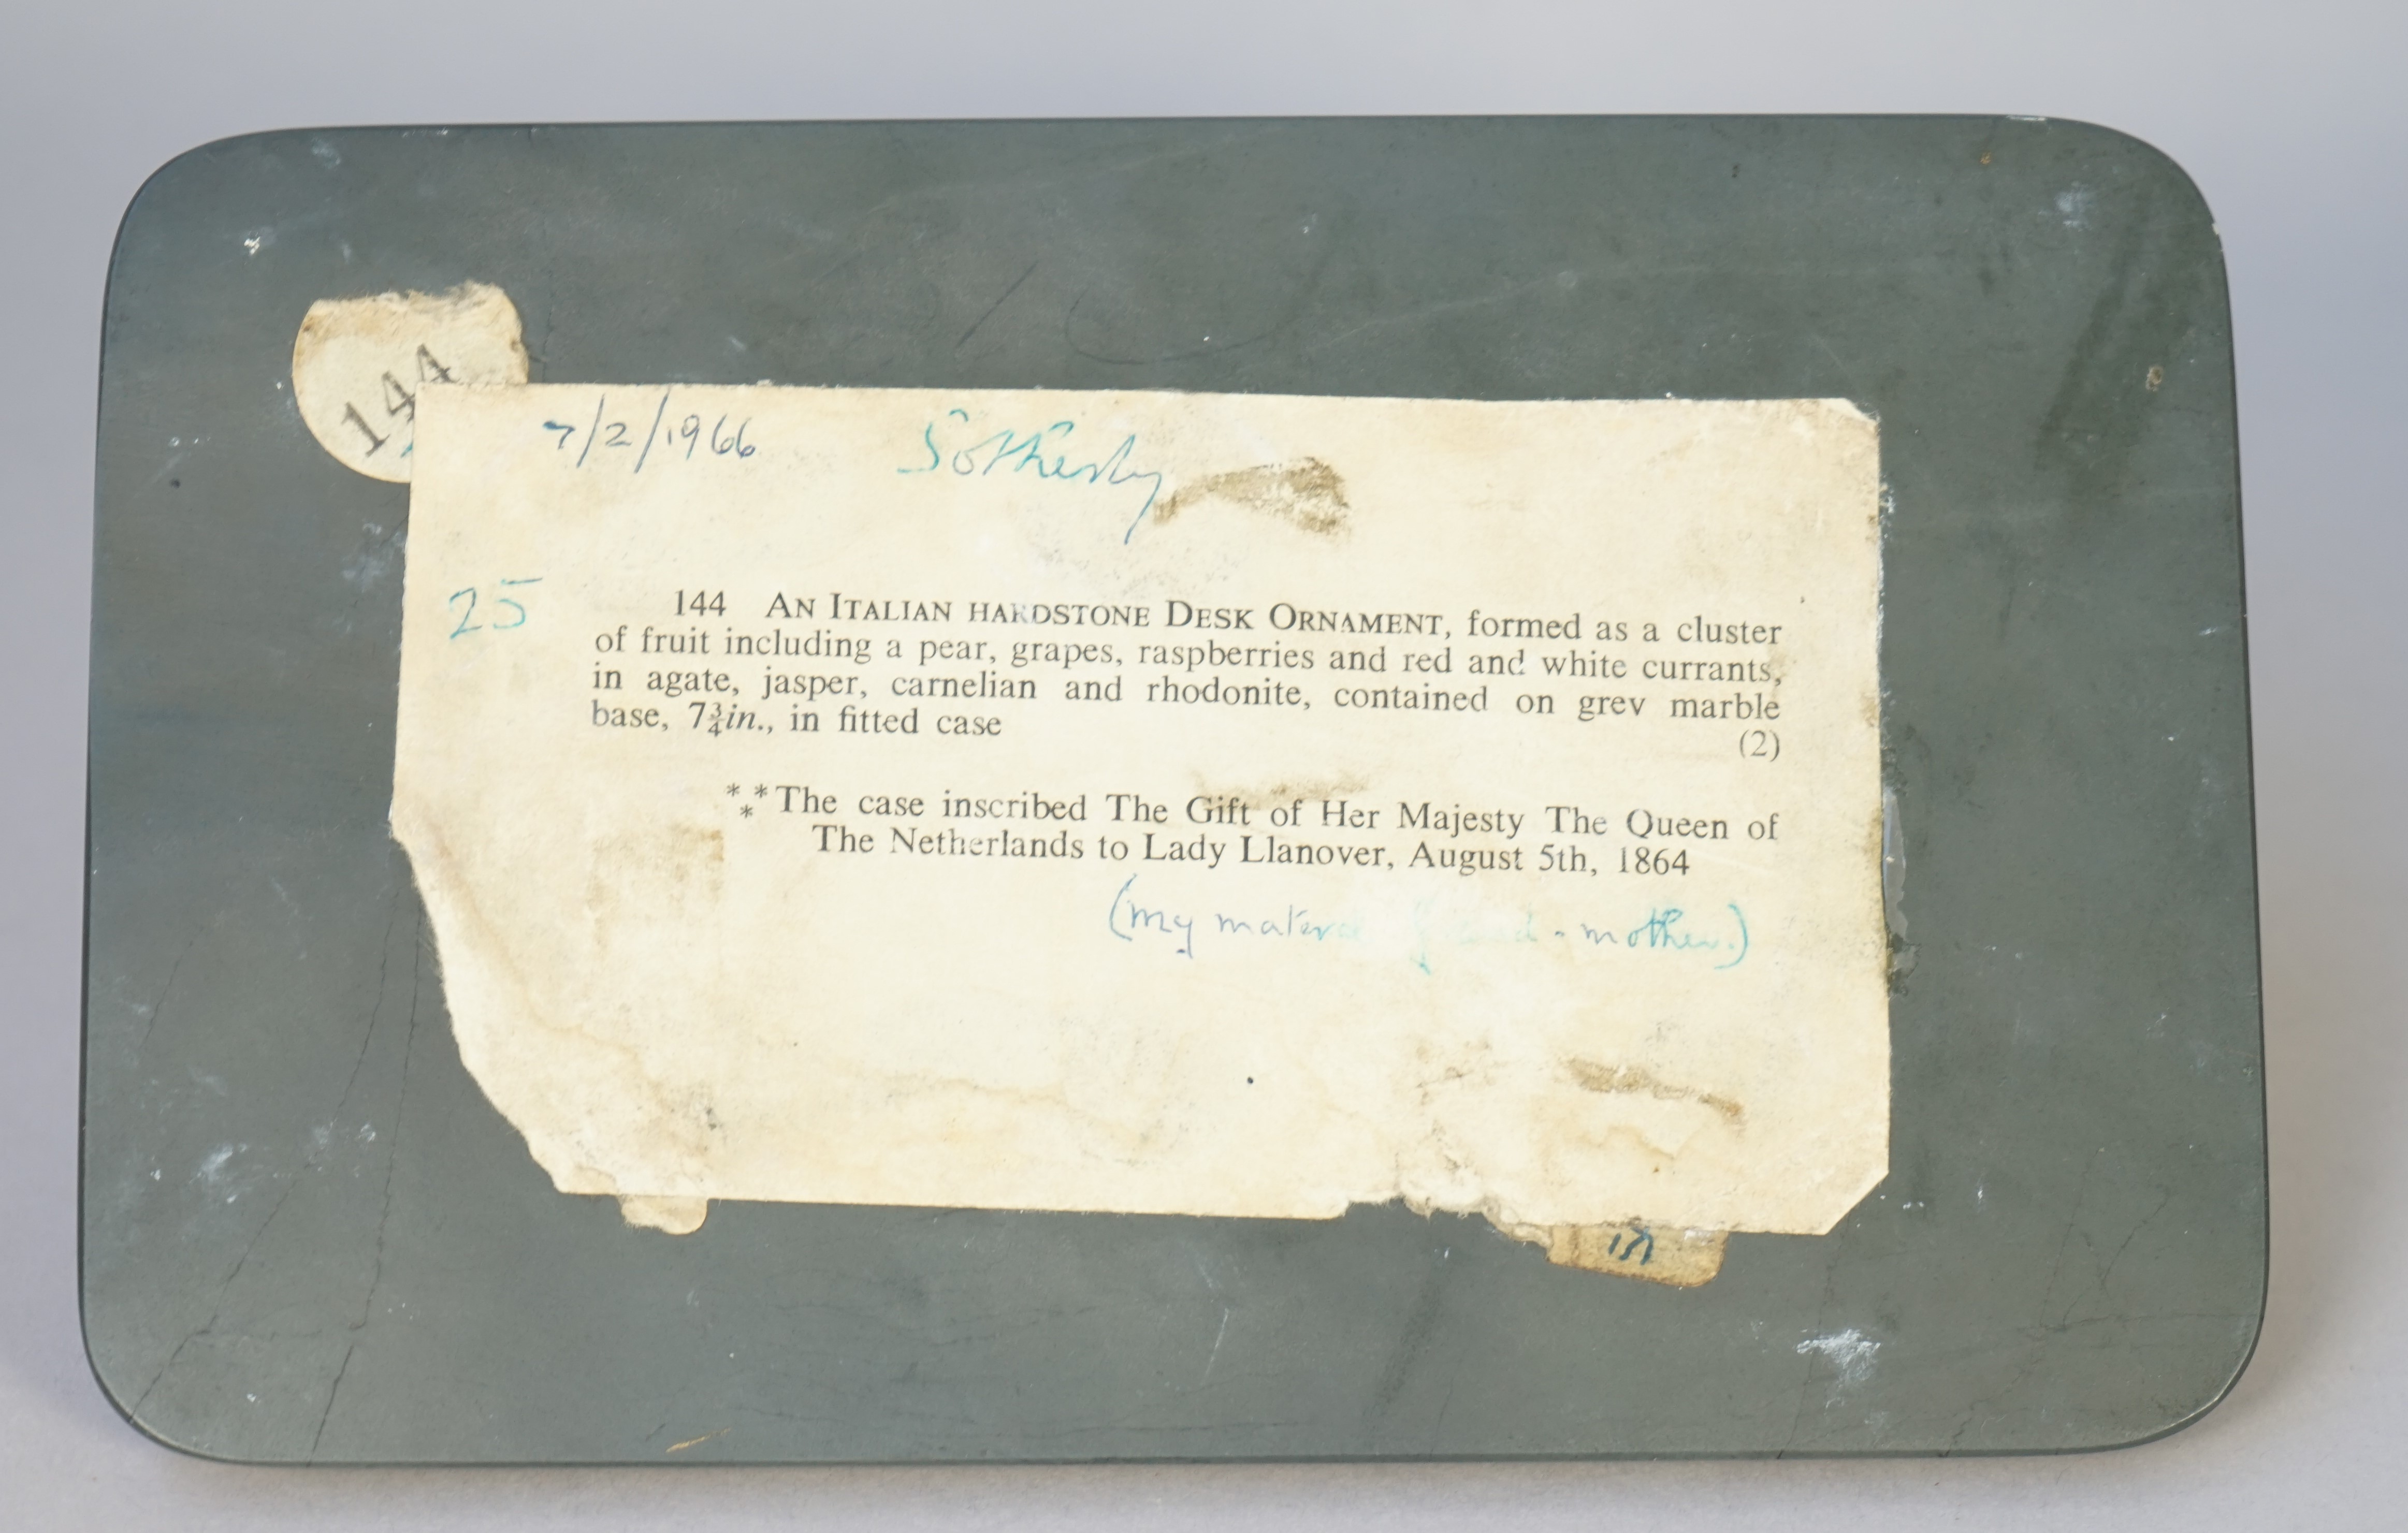 144
7/2/1966 Sotheby
25
144 AN ITALIAN HARDSTONE DESK ORNAMENT, formed as a cluster
of fruit including a pear, grapes, raspberries and red and white currants,
in agate, jasper, carnelian and rhodonite, contained on grey marble
base, 7¾in., in fitted case
(2)
*** The case inscribed The Gift of Her Majesty The Queen of
The Netherlands to Lady Llanover, August 5th, 1864
(my - mother.)